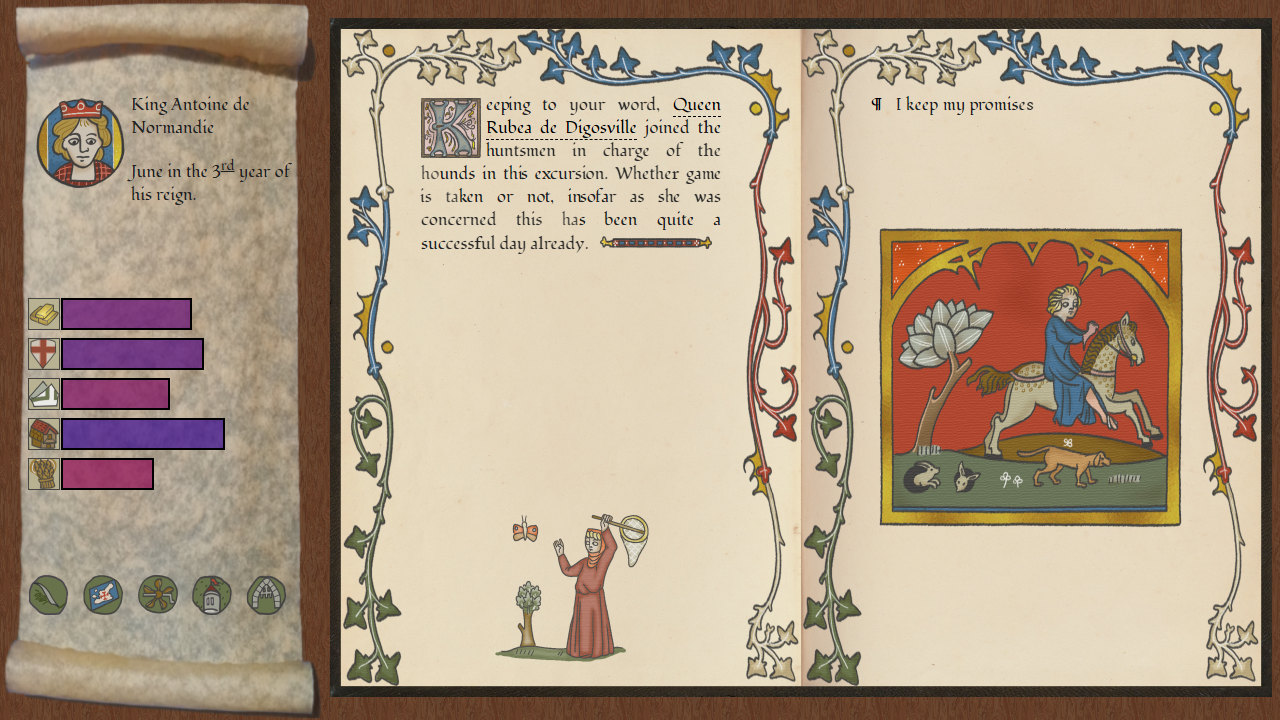 King Antoine de
Normandie
June in the 3rd year of
his reign.
Keeping to your word, Queen
Rubea de Digosville joined the
huntsmen in charge of the
hounds in this excursion. Whether game
is taken or not, insofar as she was
concerned this has been quite a
successful day already.
¶ I keep my promises